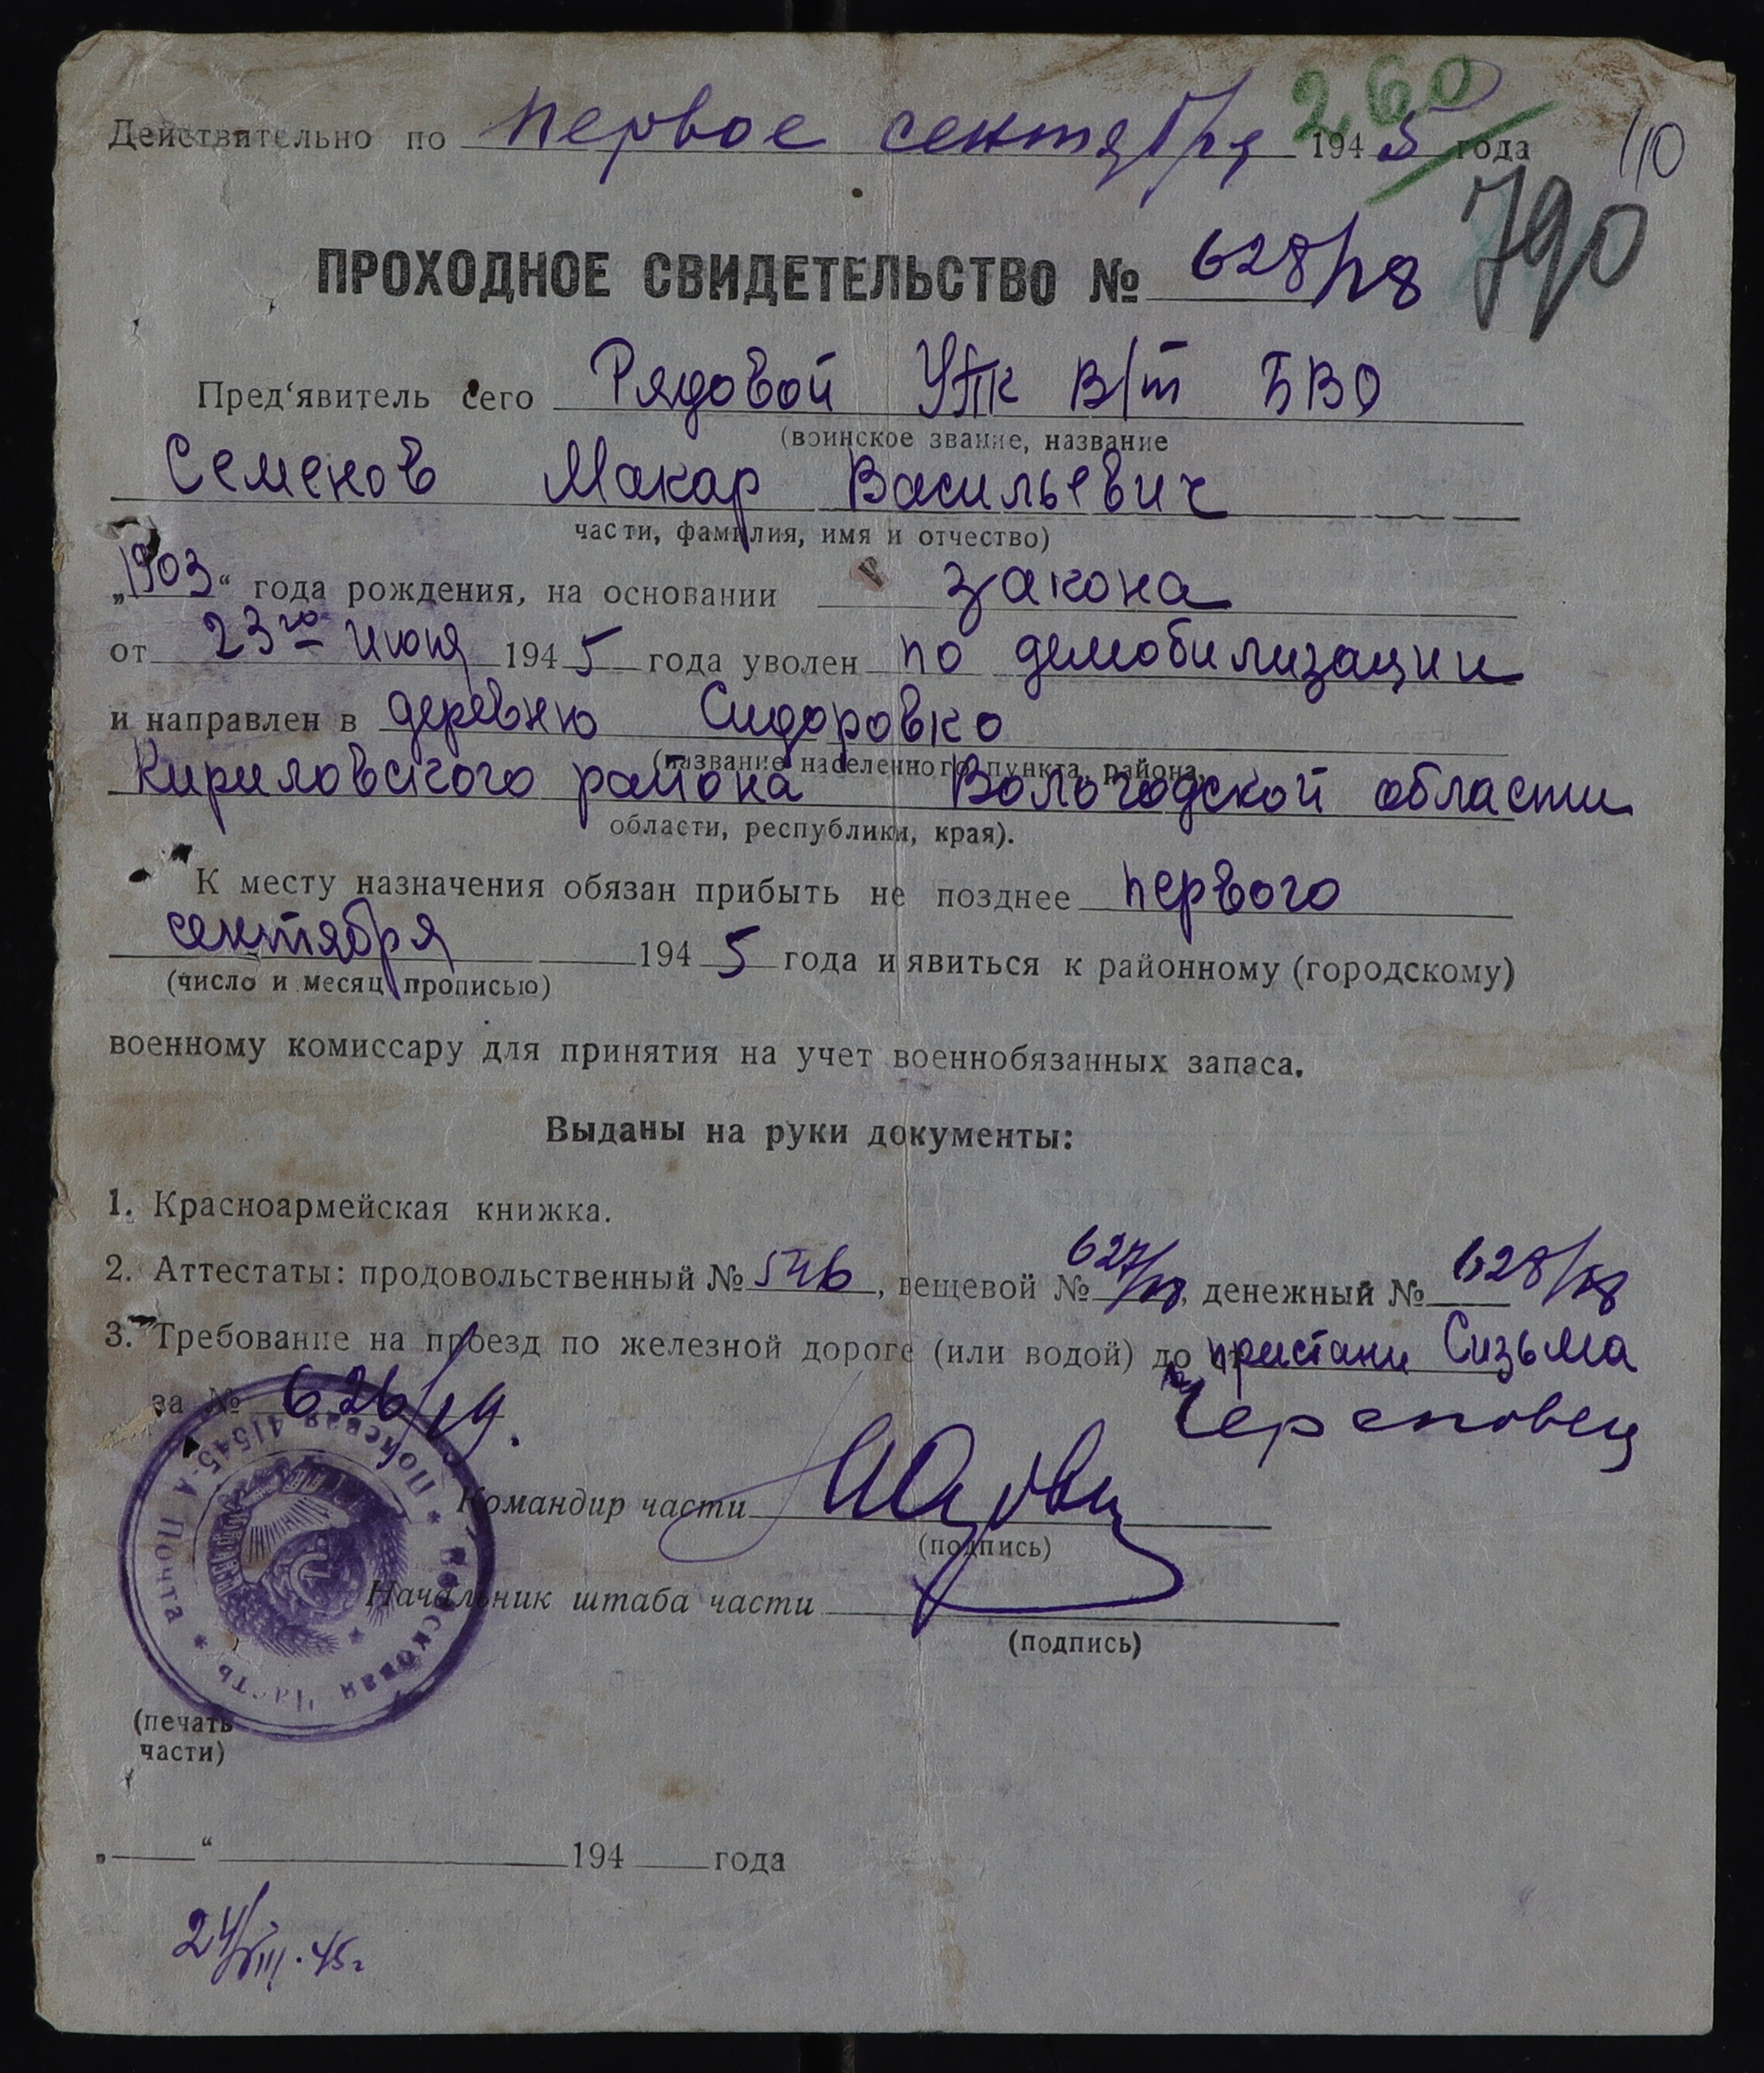 260
Действительно по первое сентября 1945 года
110
790
ПРОХОДНОЕ СВИДЕТЕЛЬСТВО № 628/18
Пред'явитель сего Рядовой УПК В/т БВО
(воинское звание, название
Семенов Макар Васильевич
части, фамилия, имя и отчество)
„1903“ года рождения, на основании закона
от 23го июня 1945 года уволен по демобилизации
и направлен в деревню Сидоровко
(название населенного пункта, района,
Кириловского района Вологодской области
области, республики, края).
К месту назначения обязан прибыть не позднее первого
сентября 1945 года и явиться к районному (городскому)
(число и месяц прописью)
военному комиссару для принятия на учет военнобязанных запаса.
Выданы на руки документы:
1. Красноармейская книжка.
2. Аттестаты: продовольственный № 546, вещевой № 627/18, денежный № 628/18
3. Требование на проезд по железной дороге (или водой) до пристани Сизьма
Череповец
за № 626/19.
Командир части
(подпись)
Начальник штаба части
(подпись)
Полевая Почта 41545-А * Войсковая Часть *
(печать
части)
„ “ 194 года
24/VIII.45г